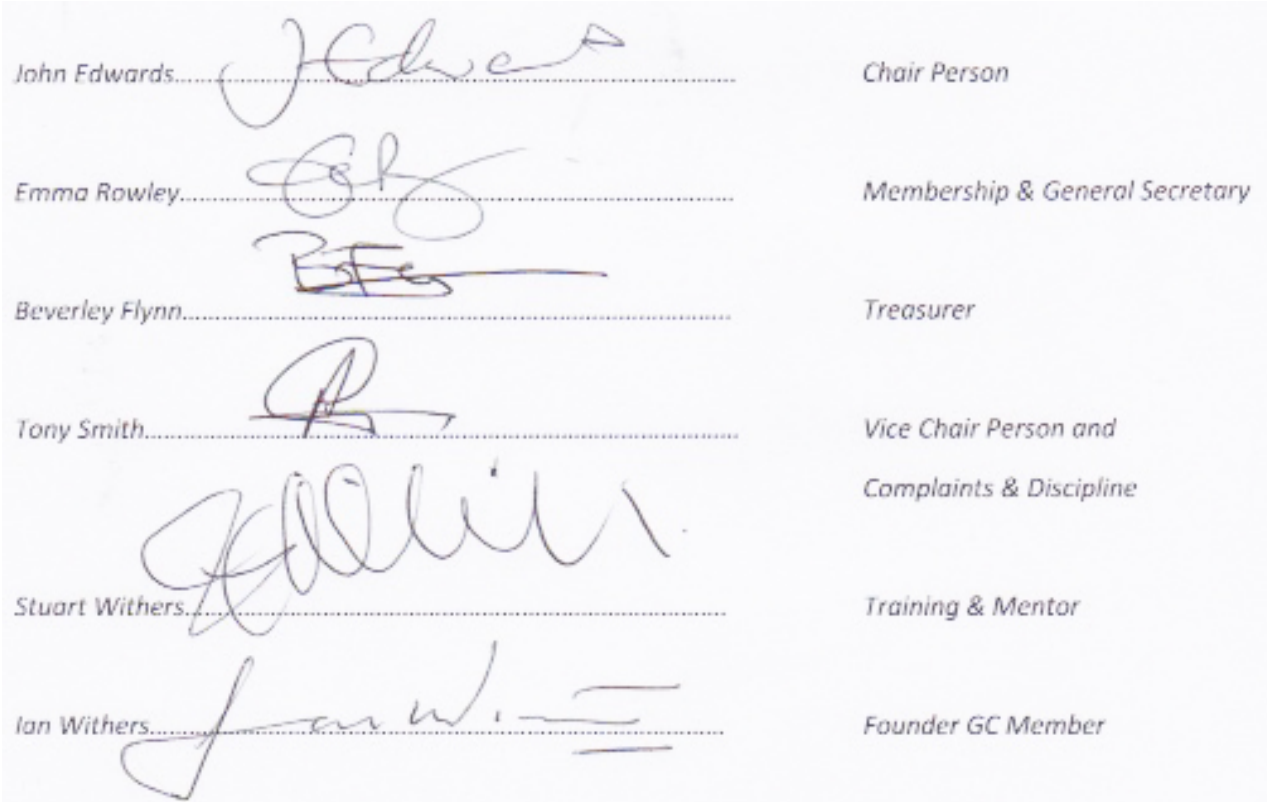 John Edwards.......... J Edwards Chair Person
Emma Rowley.......... Membership & General Secretary
Beverley Flynn.......... Treasurer
Tony Smith.......... Vice Chair Person and
Complaints & Discipline
Stuart Withers.......... Training & Mentor
Ian Withers.......... Founder GC Member